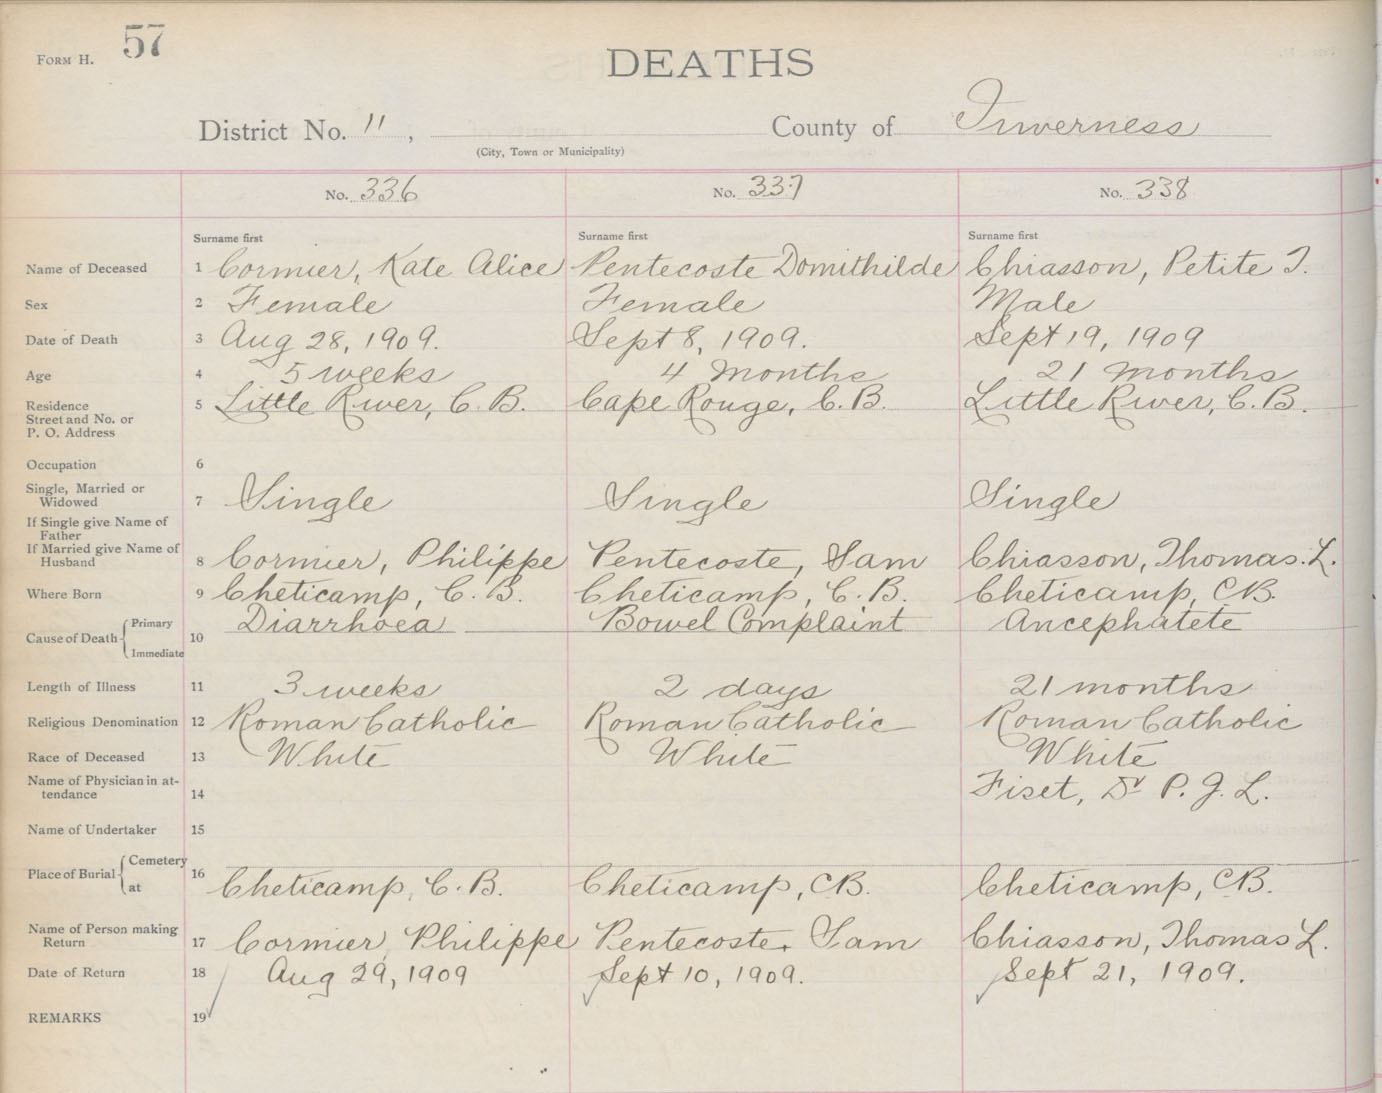 57
FORM H.
DEATHS
District No. 11, County of Inverness
(City, Town or Municipality)
No. 336 No. 337 No. 338
Surname first Surname first Surname first
Name of Deceased 1 Cormier, Kate Alice Pentecoste Domithilde Chiasson, Petite T.
Sex 2 Female Female Male
Date of Death 3 Aug 28, 1909. Sept 8, 1909. Sept 19, 1909
Age 4 5 weeks 4 Months 21 months
Residence 5 Little River, C. B. Cape Rouge, C. B. Little River, C. B.
Street and No. or
P. O. Address
Occupation 6
Single, Married or
Widowed 7 Single Single Single
If Single give Name of
Father
If Married give Name of
Husband 8 Cormier, Philippe Pentecoste, Sam Chiasson, Thomas. L.
Where Born 9 Cheticamp, C. B. Cheticamp, C. B. Cheticamp, CB.
Cause of Death { Primary 10 Diarrhoea Bowel Complaint Ancephatete
Immediate
Length of Illness 11 3 weeks 2 days 21 months
Religious Denomination 12 Roman Catholic Roman Catholic Roman Catholic
Race of Deceased 13 White White White
Name of Physician in at-
tendance 14 Fiset, Dr P. J. L.
Name of Undertaker 15
Place of Burial { Cemetery
at 16 Cheticamp, C. B. Cheticamp, CB. Cheticamp, CB.
Name of Person making
Return 17 Cormier, Philippe Pentecoste, Sam Chiasson, Thomas L.
Date of Return 18 Aug 29, 1909 Sept 10, 1909. Sept 21, 1909.
REMARKS 19